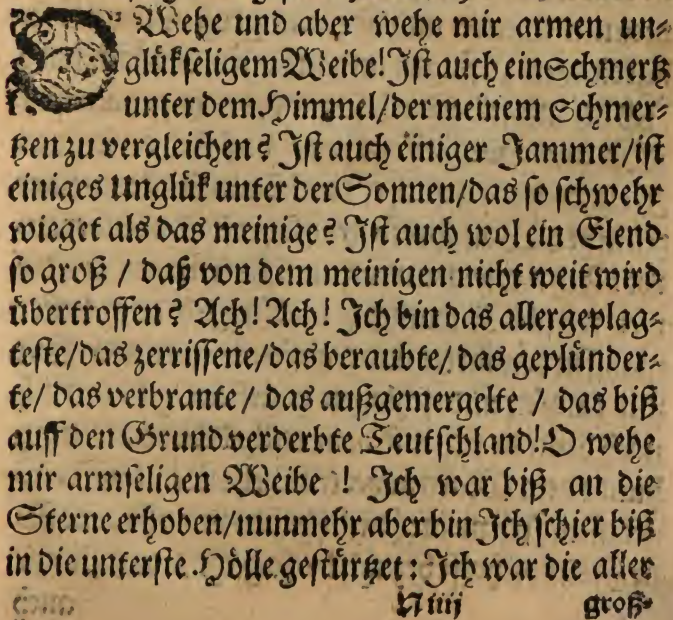 O Wehe und aber wehe mir armen un⸗
glükseligem Weibe! Ist auch ein Schmertz
unter dem Himmel/der meinem Schmer⸗
tzen zu vergleichen? Ist auch einiger Jammer/ist
einiges Unglük unter der Sonnen/das so schwehr
wieget als das meinige? Ist auch wol ein Elend
so groß / daß von dem meinigen nicht weit wird
übertroffen? Ach! Ach! Ich bin das allergeplag⸗
teste/das zerrissene/das beraubte/ das geplünder⸗
te/ das verbrante / das außgemergelte / das biß
auff den Grund verderbte Teutschland! O wehe
mir armseligen Weibe ! Ich war biß an die
Sterne erhoben/nunmehr aber bin Ich schier biß
in die unterste Hölle gestürtzet: Ich war die aller
N iiij groß⸗